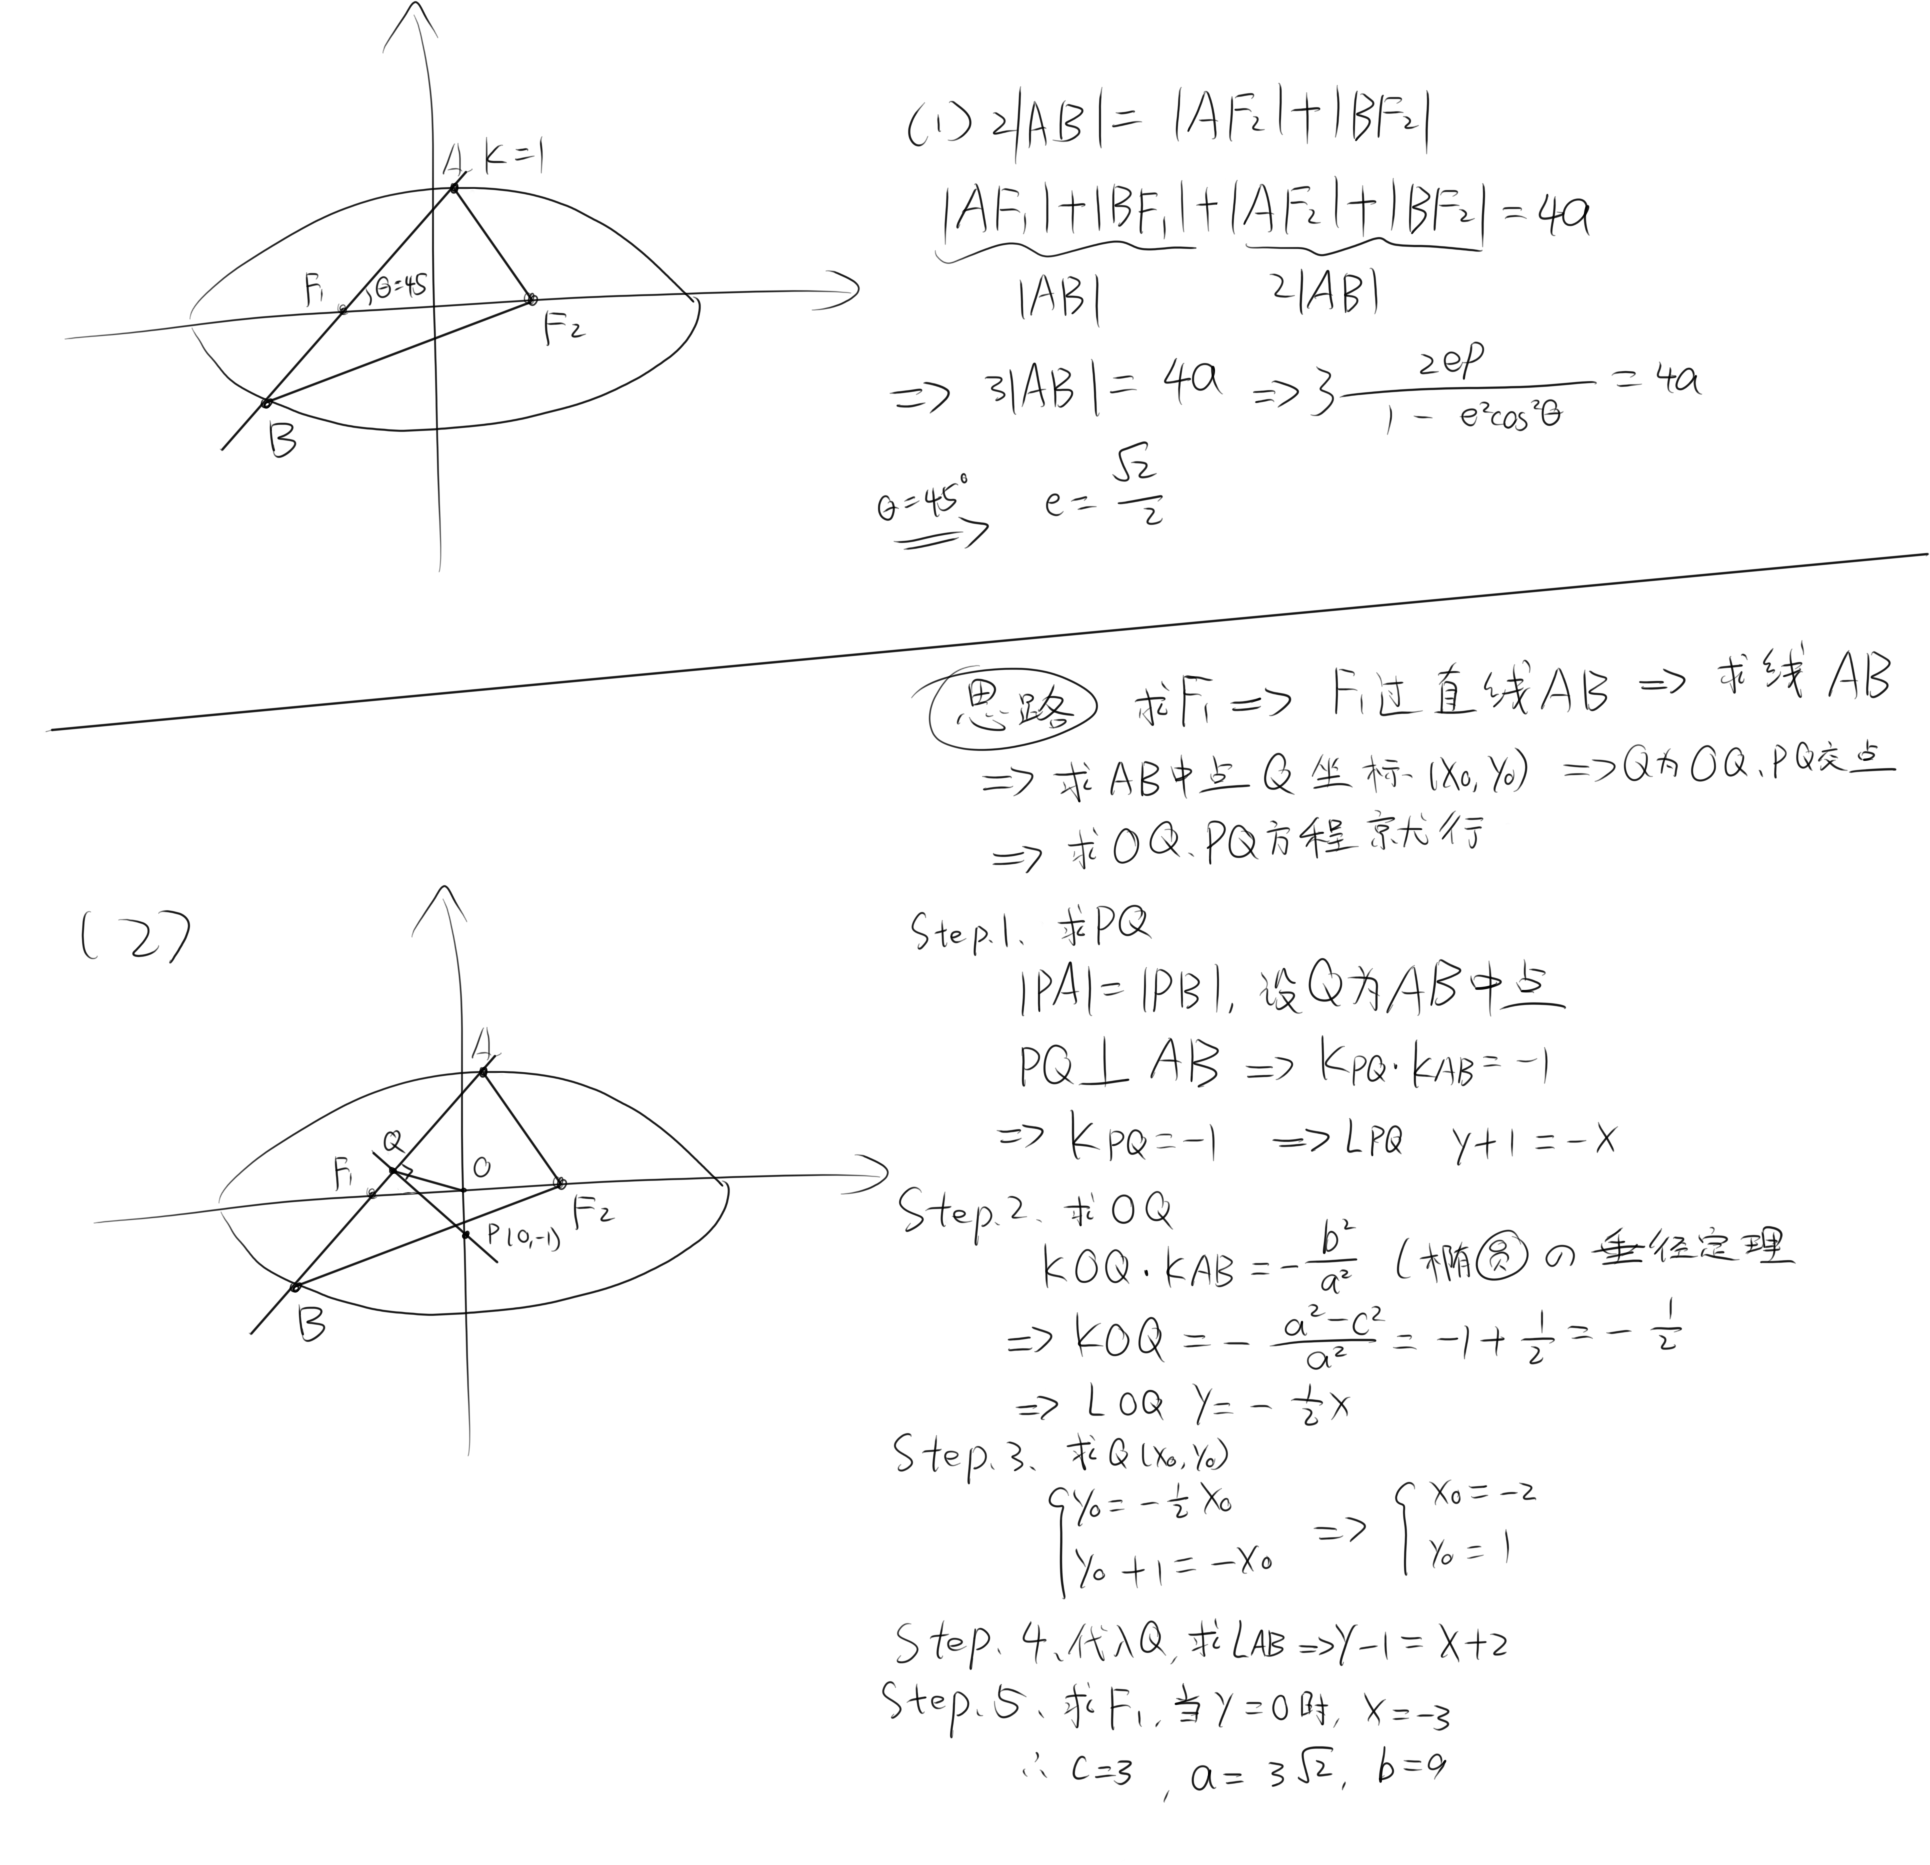 A K=1
F₁ θ=45
F₂
B
(1) 2|AB|= |AF₂|+|BF₂|
|AF₁|+|BF₁|+|AF₂|+|BF₂|=4a
|AB| 2|AB|
=> 3|AB|= 4a => 3 2ep/(1-e²cos²θ) = 4a
θ=45° => e= √2/2
思路 求F₁ => F₁过直线AB => 求线AB
=> 求AB中点Q坐标(x₀,y₀) =>Q为OQ、PQ交点
=> 求OQ、PQ方程就行
(2)
A
Q
F₁ O
F₂
P(0,-1)
B
Step.1、求PQ
|PA|=|PB|, 设Q为AB中点
PQ⊥AB => KPQ·KAB=-1
=> KPQ=-1 => LPQ y+1=-x
Step.2、求OQ
KOQ·KAB=-b²/a² (椭圆の垂径定理
=> KOQ = - (a²-c²)/a² = -1+1/2=-1/2
=> LOQ y=-1/2x
Step.3、求Q(x₀,y₀)
{y₀=-1/2x₀ => {x₀=-2
y₀+1=-x₀ y₀=1
Step.4、代入Q,求LAB=>y-1=x+2
Step.5、求F₁,当y=0时,x=-3
∴ c=3, a=3√2, b=9